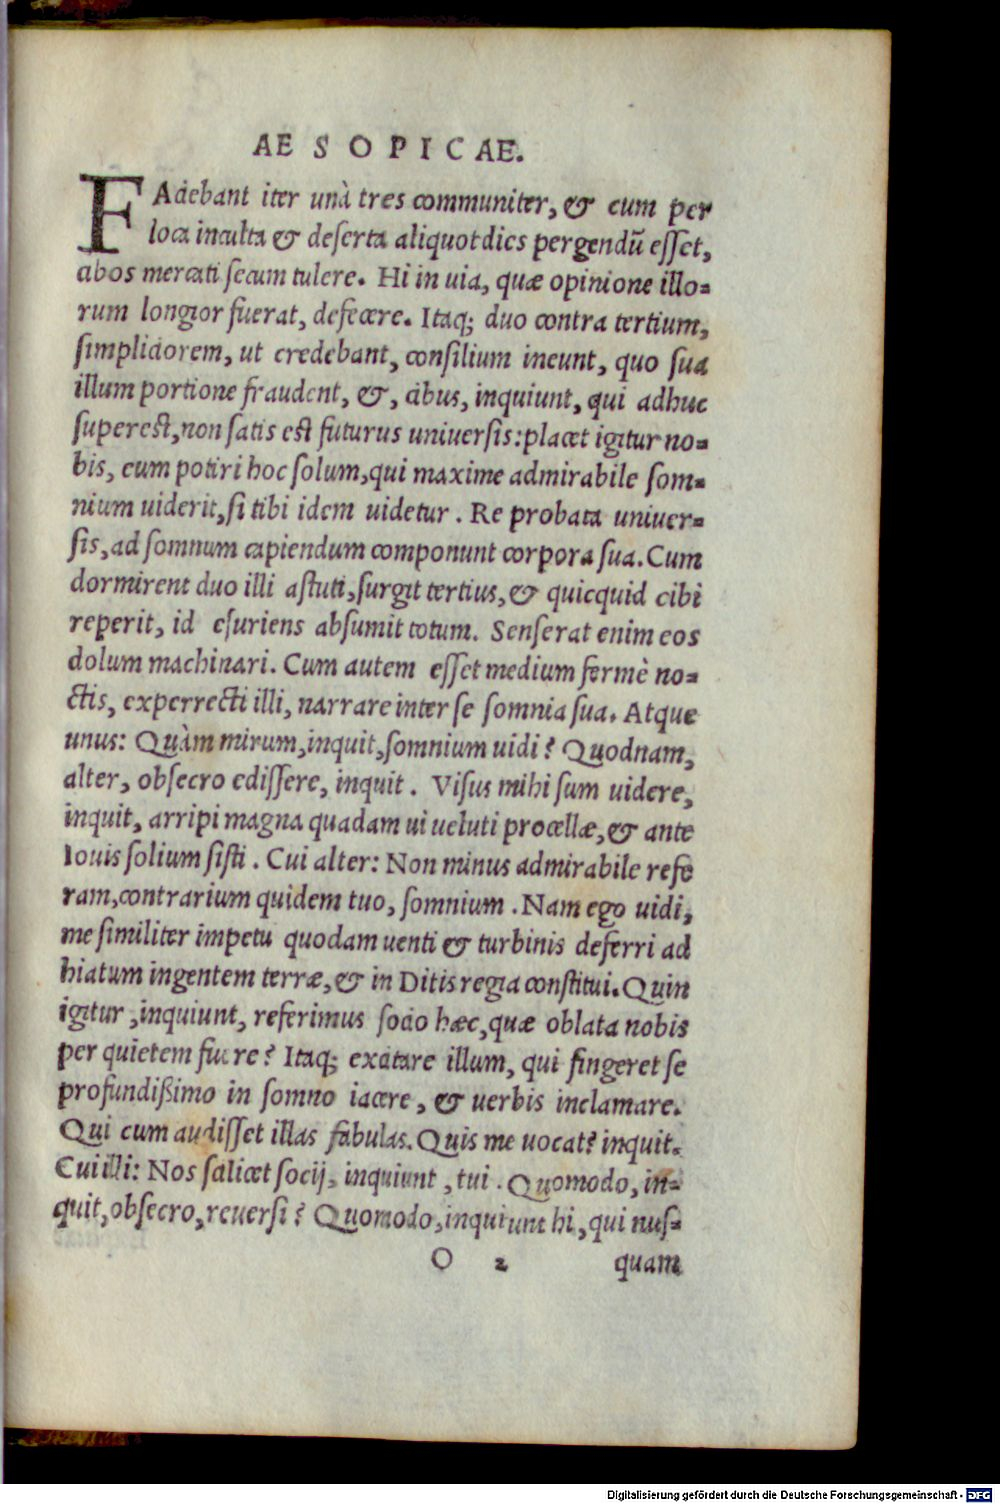 AESOPICAE.
FAciebant iter unà tres communiter, & cum per
loca inculta & deserta aliquot dies pergendũ esset,
cibos mercati secum tulere. Hi in uia, quæ opinione illo-
rum longior fuerat, defecere. Itaq; duo contra tertium,
simpliciorem, ut credebant, consilium ineunt, quo sua
illum portione fraudent, &, cibus, inquiunt, qui adhuc
superest, non satis est futurus uniuersis: placet igitur no-
bis, eum potiri hoc solum, qui maxime admirabile som-
nium uiderit, si tibi idem uidetur. Re probata uniuer-
sis, ad somnum capiendum componunt corpora sua. Cum
dormirent duo illi astuti, surgit tertius, & quicquid cibi
reperit, id esuriens absumit totum. Senserat enim eos
dolum machinari. Cum autem esset medium fermè no-
ctis, experrecti illi, narrare inter se somnia sua. Atque
unus: Quàm mirum, inquit, somnium uidi? Quodnam,
alter, obsecro edissere, inquit. Visus mihi sum uidere,
inquit, arripi magna quadam ui ueluti procellæ, & ante
Iouis solium sisti. Cui alter: Non minus admirabile refe
ram, contrarium quidem tuo, somnium. Nam ego uidi,
me similiter impetu quodam uenti & turbinis deferri ad
hiatum ingentem terræ, & in Ditis regia constitui. Quin
igitur, inquiunt, referimus socio hæc, quæ oblata nobis
per quietem fuere? Itaq; excitare illum, qui fingeret se
profundißimo in somno iacere, & uerbis inclamare.
Qui cum audisset illas fabulas. Quis me uocat? inquit.
Cui illi: Nos scilicet socij, inquiunt, tui. Quomodo, in-
quit, obsecro, reuersi? Quomodo, inquiunt hi, qui nus-
O 2 quam
Digitalisierung gefördert durch die Deutsche Forschungsgemeinschaft - DFG